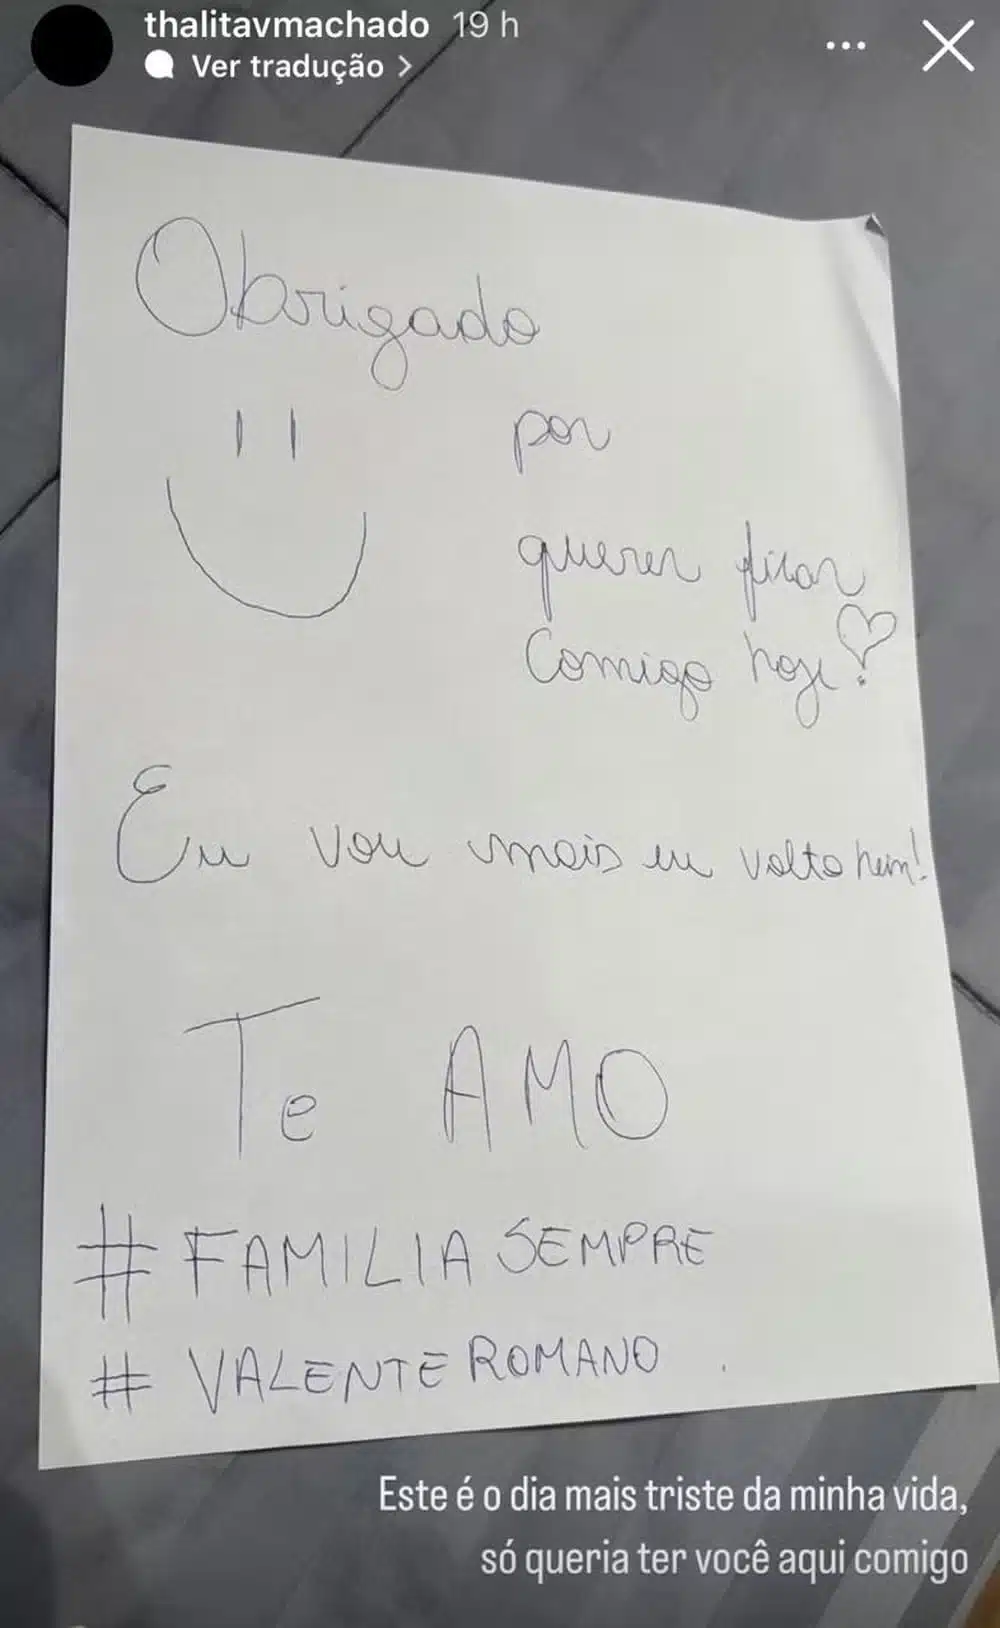 thalitavmachado 19 h
Ver tradução
Obrigado
por
querer ficar
Comigo hoje!
Eu vou mais eu volto hem!
Te AMO
# FAMILIA SEMPRE
# VALENTE ROMANO
Este é o dia mais triste da minha vida,
só queria ter você aqui comigo